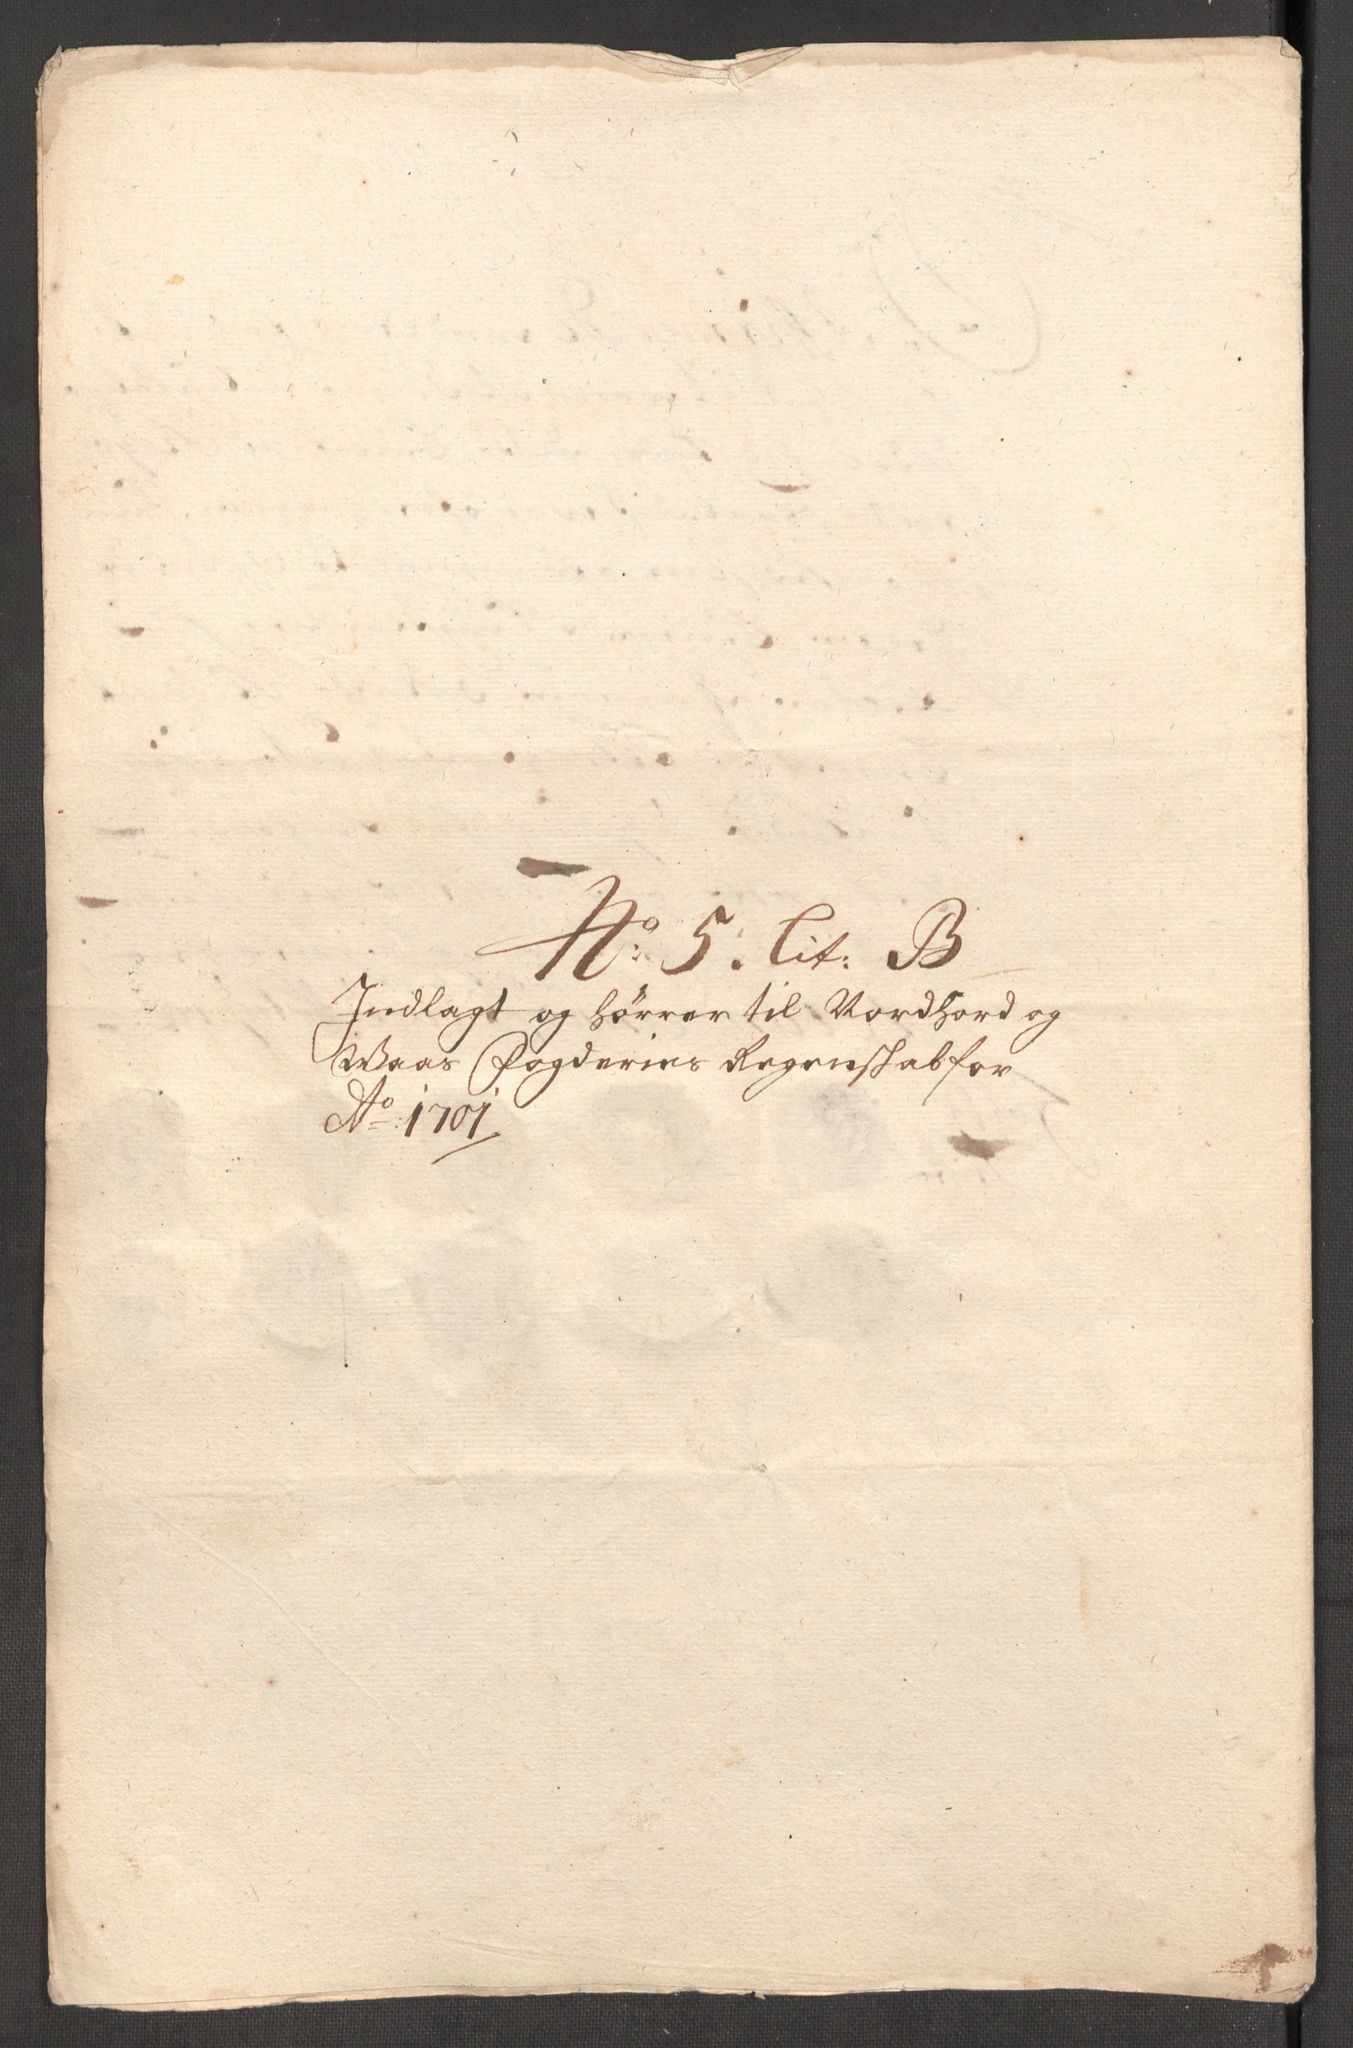 No: 5. Lit: B
Indlagt og hørrer til Nordhord og
Waas Fogderies Regenskab for
Ao: 1701